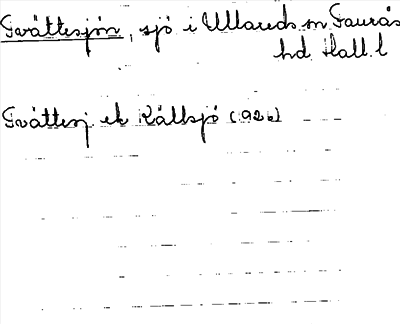 Tvåttesjön, sjö i Ullareds sn Faurås
hd. Hall. l
Tvåttesj. ek Källsjö